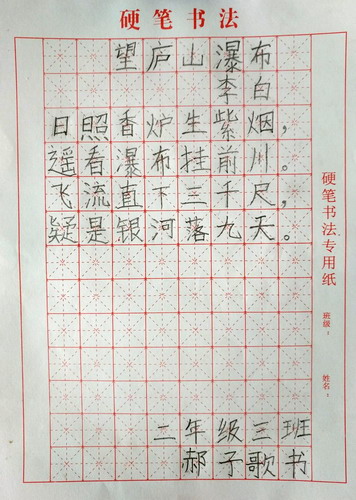 硬笔书法
望庐山瀑布
李白
日照香炉生紫烟，
遥看瀑布挂前川。
飞流直下三千尺，
疑是银河落九天。
二年级三班
郝子歌书
硬笔书法专用纸
班级：
姓名：